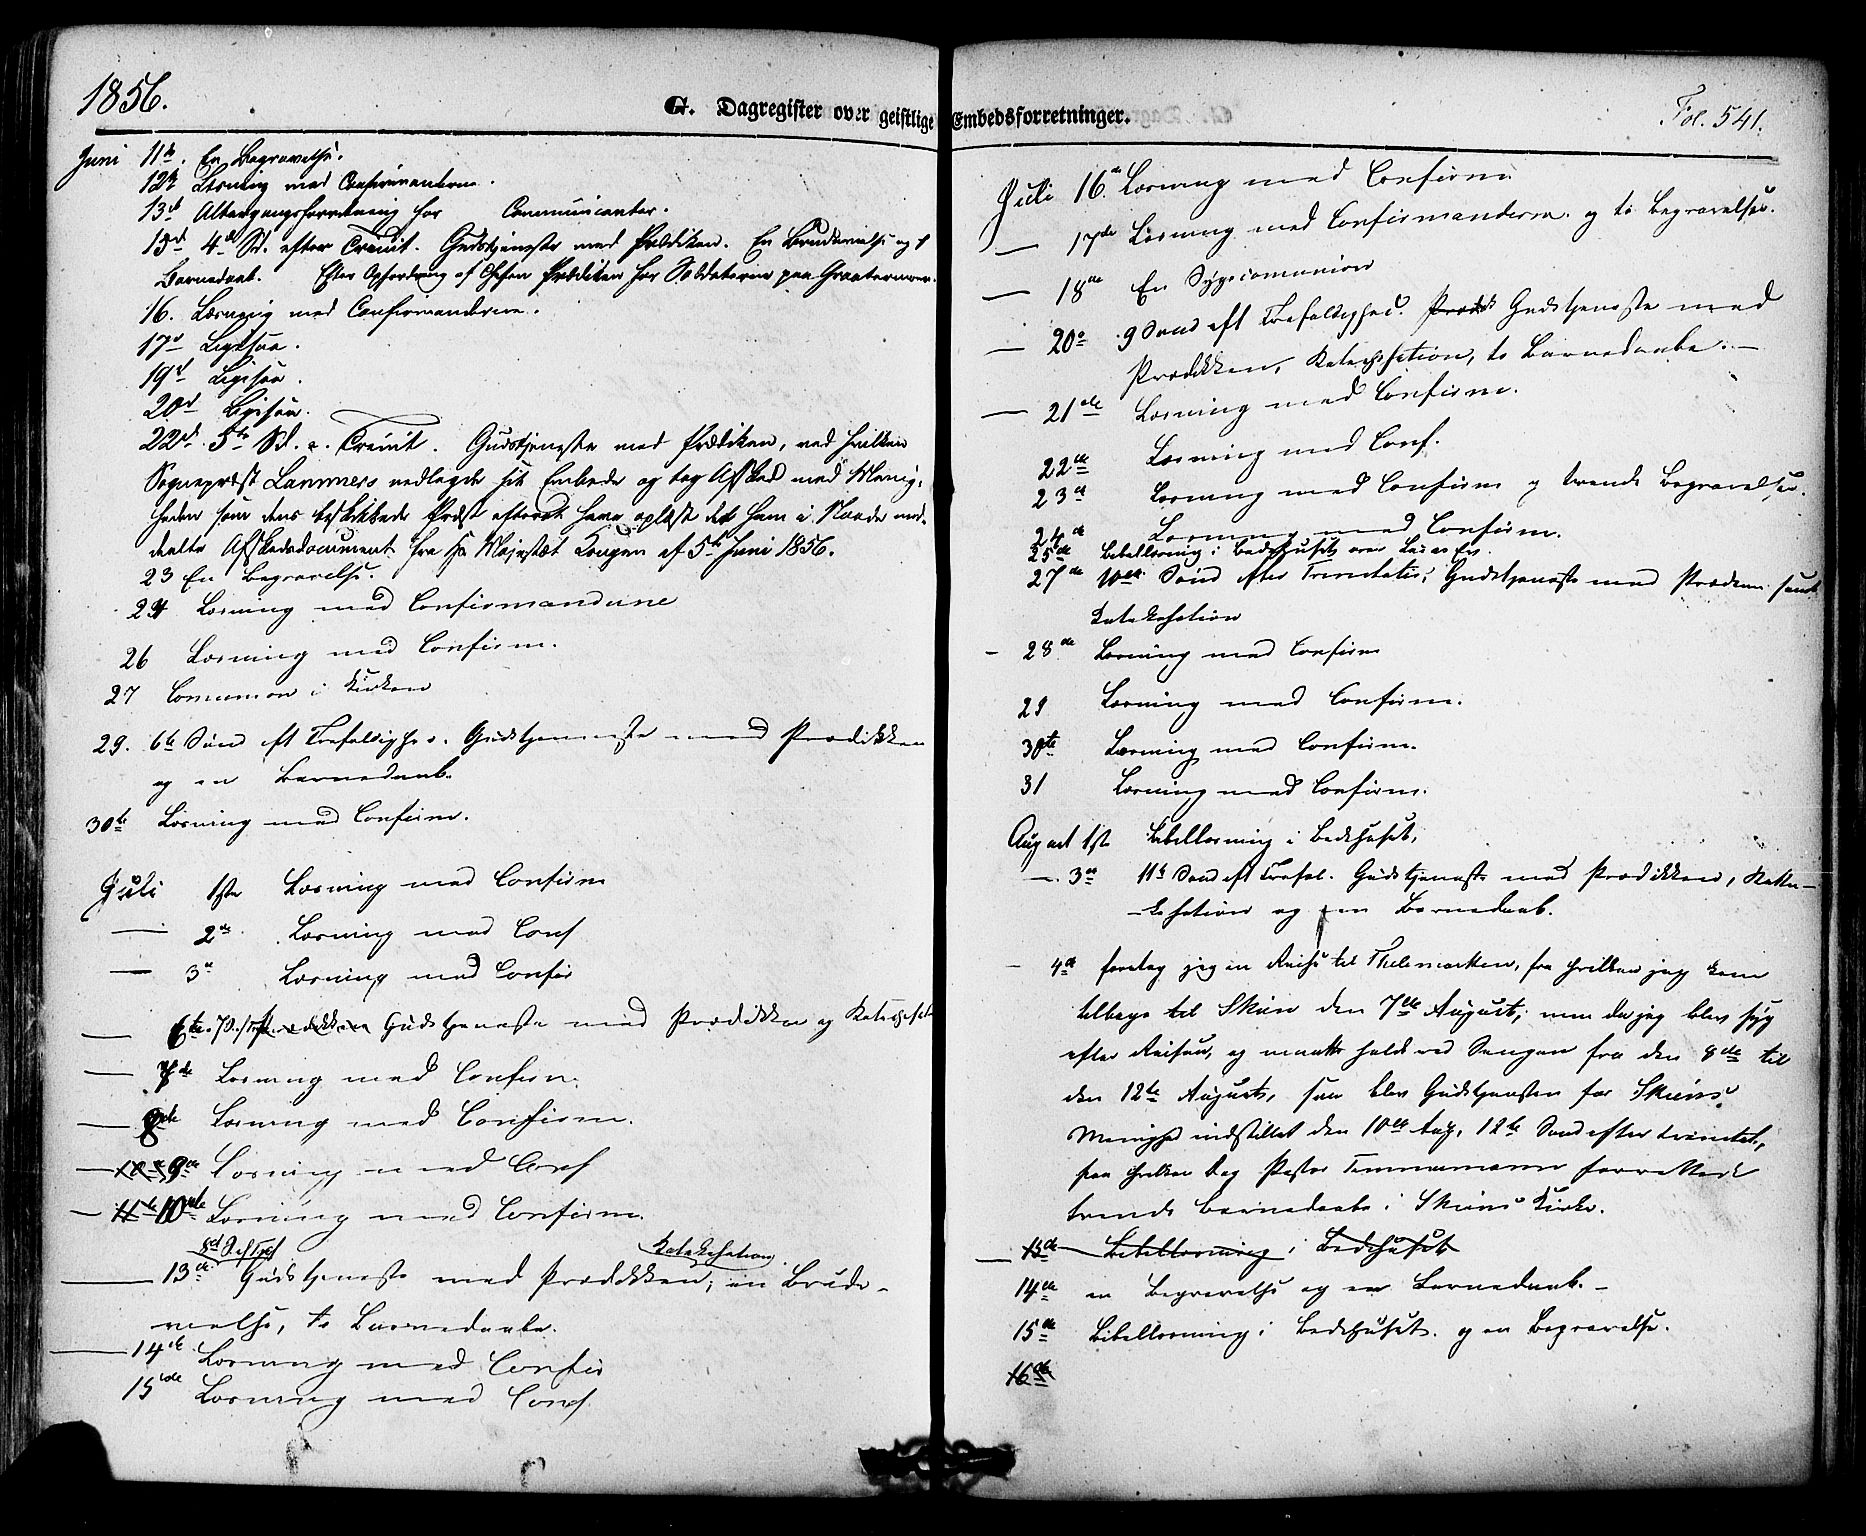 1856.
G. Dagregister over geistlige Embedsforretninger.
Fol. 541.
Juni 11te. En Begravelse.
12te Læsning med Confirmanterne.
13de Altergangsforretning for Communicanter.
15de 4de Sd. efter Trinit. Gudstjeneste med Prædiken. En Brudevielse og 1
Barnedaab. Efter Opfordring af Chefen Prædiken for Soldaterne paa Graatenmoen.
16. Læsning med Confirmanderne.
17de Ligesaa.
19de Ligesaa.
20de Ligesaa.
22de. 5te Sd. e. Trinit. Gudstjeneste med Prædiken, ved hvilken
Sognepræst Lammers nedlagde sit Embede og tog Afsked med Menig-
heden som dens beskikkede Præst efterat have oplæst det ham i Naade med-
deelte Afskedsdocument fra Hs Majestæt Kongen af 5te Juni 1856.
23 En Begravelse.
24 Læsning med Confirmanderne
26 Læsning med Confirm.
27 Communion i Kirken
29. 6te Sønd eft Trefoldighe. Gudstjeneste med Prædikken
og en Barnedaab.
30te Læsning med Confirm.
Juli 1ste Læsning med Confirm
2de. Læsning med Conf
3de Læsning med Confir
6te. 7 S. Gudstjeneste med Prædikken og Katechesat
7de Læsning med Confirm.
8de Læsning med Confirm.
9de Læsning med Conf
10de Læsning med Confirm.
8de S. eft Tref Katekesation
13de Gudstjeneste med Prædikken, en Brude-
vielse, to Barnedaabe.
14de Læsning med Confir
15de Læsning med Conf
Juli 16de Læsning med Confirm
17de Læsning med Confirmanderne og to Begravelser.
18de En Sygecommunion
20de 9 Sønd eft Trefoldighed. Præd Gudstjeneste med
Prædikken, Katechesation, to Barnedaabe.
21de Læsning med Confirm.
22de Læsning med Conf.
23de Læsning med Confirm og trende Begravelser.
24de Læsning med Confirm.
25de Bibellæsning i Bedehuset over
27de 10de Sønd efter Trinitatis, Gudstjeneste med Prædiken samt
Katekesation
28de Læsning med Confirm
29 Læsning med Confirm.
30te Læsning med Confirm.
31 Læsning med Confirm.
August 1ste Bibellæsning i Bedehuset.
3de 11te Sønd eft Trefol. Gudstjeneste med Prædikken, Kate-
kesation og en Barnedaab.
4de foretog jeg en Reise til Thelemarken, fra hvilken jeg kom
tilbage til Skien den 7de August; men da jeg blev syg
efter Reisen, og maatte holde ved Sengen fra den 8de til
den 12te August, saa blev Gudstjenesten for Skiens
Menighed indstillet den 10de Aug, 12te Sønd efter Trinitat,
paa hvilken Dag Pastor Temmermann forrettede
trende Barnedaabe i Skiens Kirke.
13de Bibellæsning i Bedehuset
14de en Begravelse og en Barnedaab.
15de Bibellæsning i Bedehuset og en Begravelse.
16de